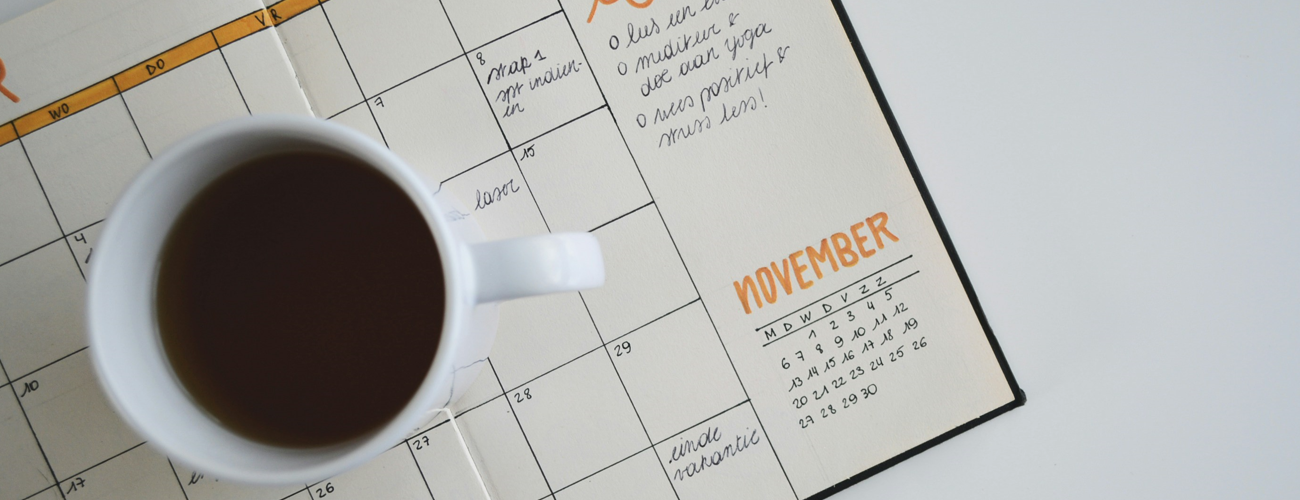 WO
DO
VR
4
10
17
26
27
7
28
8
stap 1
spt indien-
en
15
lasor
29
einde
vakantie
o lees een
o mediteer &
doe aan yoga
o wees positief &
stress less!
NOVEMBER
M D W D V Z Z
1 2 3 4 5
6 7 8 9 10 11 12
13 14 15 16 17 18 19
20 21 22 23 24 25 26
27 28 29 30